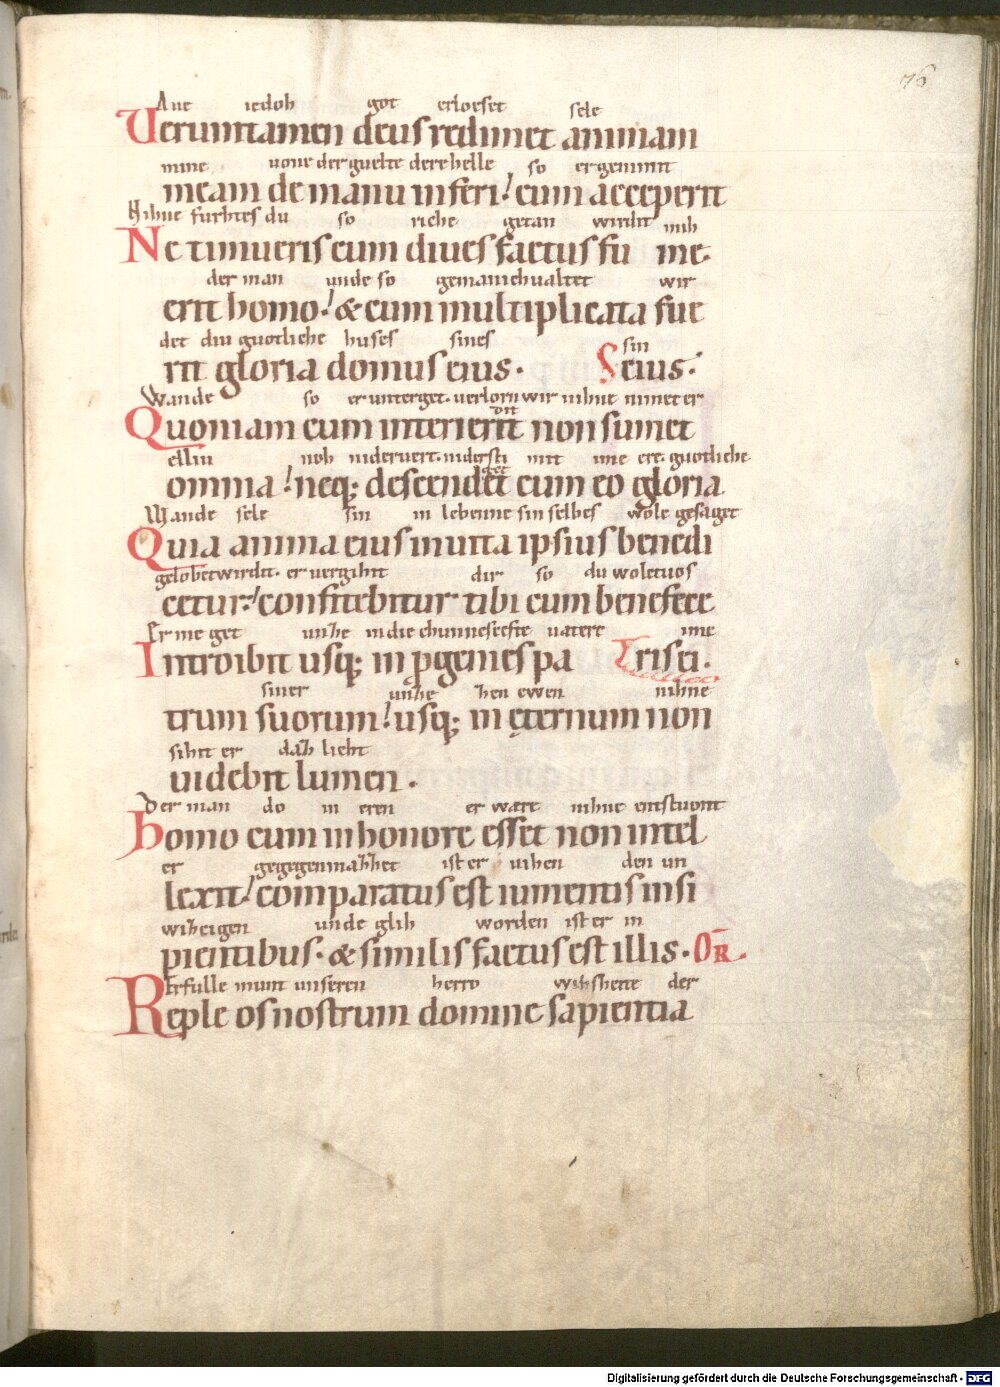 76
Aue iedoh got erloeset sele
Ueruntamen deus redimet animam
mine uone der guelte dere helle so er genimit
meam de manu inferi! cum acceperit
Nihne furhtes du so riche getan wirdit mih
Ne timueris cum diues factus fu me.
der man unde so gemanichualtet wir
erit homo! & cum multiplicata fue
det diu guotliche huses sines sin
rit gloria domus eius. S eius.
Wande so er unterget. uerlorn wir nihne nimet er
Quoniam cum interierit non sumet
elliu noh nideruert. nidersti mit ime ere. guotliche
omnia! neq; descendet cum eo gloria
Wande sele sin in lebenne sin selbes wole gesaget
Quia anima eius in uita ipsius benedi
gelobet wirdit. er uergihit dir so du wole tuos
cetur! confitebitur tibi cum benefece
Er in get unze in die chunneseefte uatere ime
Introibit usq; in pgenies pa ris ei.
siner unze zen ewen nihne
trum suorum! usq; in ęternum non
sihit er daz lieht
uidebit lumen.
Der man do in eren er ware nihne entstuont
Homo cum in honore esset non intel
er gegegenmazzet ist er uihen den un
lexit! comparatus est iumentis insi
wizzeigen unde glih worden ist er in
pientibus. & similis factus est illis. OR.
Erfulle munt unseren herro wihsheite der
Reple os nostrum domine sapientia
Digitalisierung gefördert durch die Deutsche Forschungsgemeinschaft - DFG